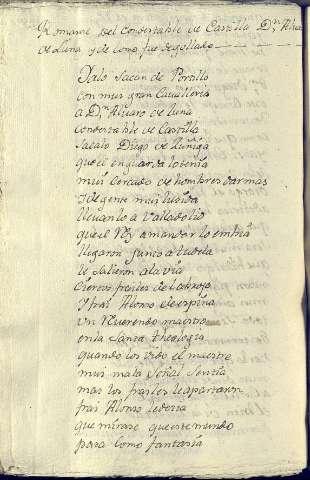 Romance del Condestable de Castilla Dn Alvaro
de Luna y de como fue degollado
Yalo sacan de Portillo
con mui gran Cavalleria
a Dn Alvaro de luna
Condestable de Castilla
sacalo Diego de Zuñiga
que el en guarda lo tenia
mui cercado de hombres darmas
Y de gente mui luzida
llevanlo a Valladolid
que el Rey a mandar lo embia
llegaron junto a tudela
le salieron ala via
ciertos frailes del abrojo
Y frai Alonso de espina
Un Reverendo maestro
en la santa theologia
quando los vido el maestre
mui mala señal sentia
mas los frailes le apartaron
frai Alonso le decia
que mirase que este mundo
pasa como fantasia